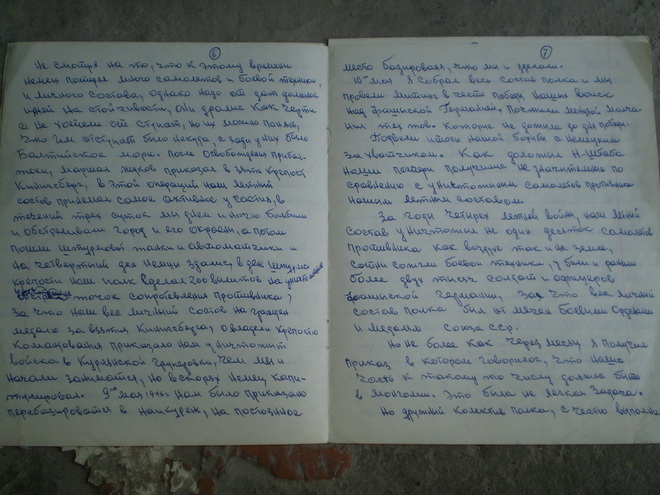 6
Не смотря на то, что к этому времени
немец потерял много самолетов и боевой техники,
и личного состава, однако надо от дать должное
идей на стойчивости, они дрались как черти
и не хотели от ступать, но их можно понять,
что им отступать было некуда, с зади у них было
Балтийское море. После освобождения Прибал-
тики, маршал Жуков приказал взять крепость
Кинигсберг, в этой операции наш летний
состав принемал самое активное участие, в
течений трех суток мы днем и ночю бомбили
и обстреливали город и его окраены, а потом
пошли штурмовать танки и автоматчики и
на четвертый ден немци здались, в ден штурма
крепости наш полк сделал 200 вылитов на
точек сопротевления противника,
за что нам все личный состав на гражден
медалю за взятия Кинигсберга, овладев крепостю
Командования приказало нам уничтожит
войска в Курлянской групировки, чем мы и
начали заниматся, но вскоры немец капи-
тулировал. 9го мая 1945г. нам было приказано
перебазироватся в на постоянное
7
место базирования, что мы и зделали.
10го мая я собрал весь состав полка и мы
провели митинг в чести победы наших войск
над фрашиской Германией. Почтили менутой молча-
ния тех ков. Которые не дожили до дня победы.
Подвели итоги нашой борьбе с немецкими
захватчиком. Как доложил Н-штаба
наши потери получише не значительны по
сравнению с уничтожиным самолетов противника
нашим летним составом.
За годи четирех летней войны, наш летний
состав уничтожил не один десяток самолетов
противника как воздухе так и на земле,
сотни сожгли боевой техники, убили и ранили
более двух тисяч солдат и офицеров
фрашиской Германии, За что весь личный
состав полка был от мечен боевими Орденами
и медалми союза ССР.
Но не более как через месяц я получив
приказ в котором говорилось, что наша
часть к такому то числу должна быть
в Монголии. Это была не легкая задача.
Но дружний колектив полка, с честю выполнил